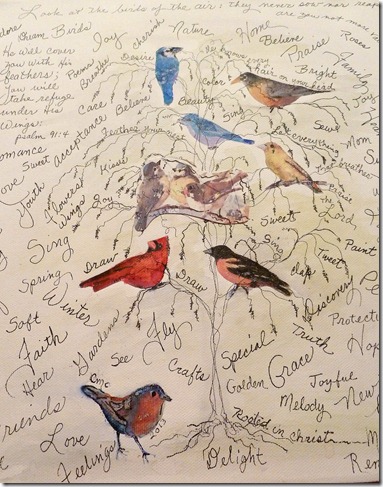 Look at the birds of the air; they never sow nor reap
are you not more va
adore
Charm
Birds
Joy
cherish
Nature
Home
Believe
Roses
He will cover
you with His
feathers;
you will
take refuge
under His
Wings.
psalm 91:4
Poems
Breathe
Desire
Praise
Bright
Family
Care
Believe
Beauty
color
hair on your head
Joy
acceptance
Feather your nest
Sing
Sews
Romance
Sweet
Love
Youth
Flowers
Wings
Music
Joy
Last everything
Mom
Praise
the
Lord
Sweets
Sing
Sing
Spring
Draw
Draw
clap
Tweet
Paint
Discovery
Winter
Soft
Faith
Hear
Gardens
See
Fly
Crafts
Special
Truth
Protect
Hop
Golden
Grace
Joyful
Melody
New
cmc
2013
Friends
Love
Feelings
Rooted in christ
Delight